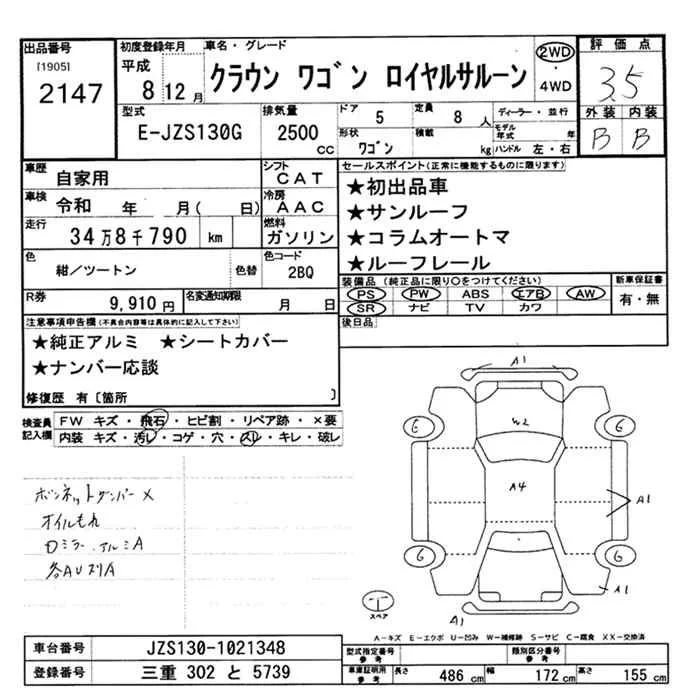 出品番号
[1905]
2147
初度登録年月
平成
8 12 月
車名・グレード
クラウン ワゴン ロイヤルサルーン
2WD
・
4WD
評価点
3.5
外装 内装
B B
型式
E-JZS130G
排気量
2500
CC
ドア
5
定員
8 人
形状
ワゴン
積載
kg
ディーラー・並行
モデル年式 年
ハンドル 左・右
車歴
自家用
シフト
CAT
車検
令和 年 月( 日)
冷房
AAC
走行
34万8千790 km
燃料
ガソリン
色
紺/ツートン
色替
色コード
2BQ
R券
9,910 円
名変通知期限
月 日
セールスポイント(正常に機能するものに限ります)
★初出品車
★サンルーフ
★コラムオートマ
★ルーフレール
装備品(純正品に限り○をつけてください)
PS PW ABS エアB AW
SR ナビ TV カワ
新車保証書
有・無
後日品
注意事項申告欄(不具合内容等は具体的に記入して下さい)
★純正アルミ ★シートカバー
★ナンバー応談
修復歴 有〔箇所 〕
検査員記入欄
FW キズ・飛石・ヒビ割・リペア跡・×要
内装 キズ・汚レ・コゲ・穴・スレ・キレ・破レ
ボンネットダンパー×
オイルもれ
ロミラー、アルミA
各AUスリA
A1
G G
W2
A4
A1
G G
A1
スペア
A1
A-キズ E-エクボ U-凹み W-補修跡 S-サビ C-腐食 XX-交換済
車台番号
JZS130-1021348
登録番号
三重 302 と 5739
型式指定番号
参考
類別区分番号
参考
車庫証明用
参考
長さ 486 cm 幅 172 cm 高さ 155 cm